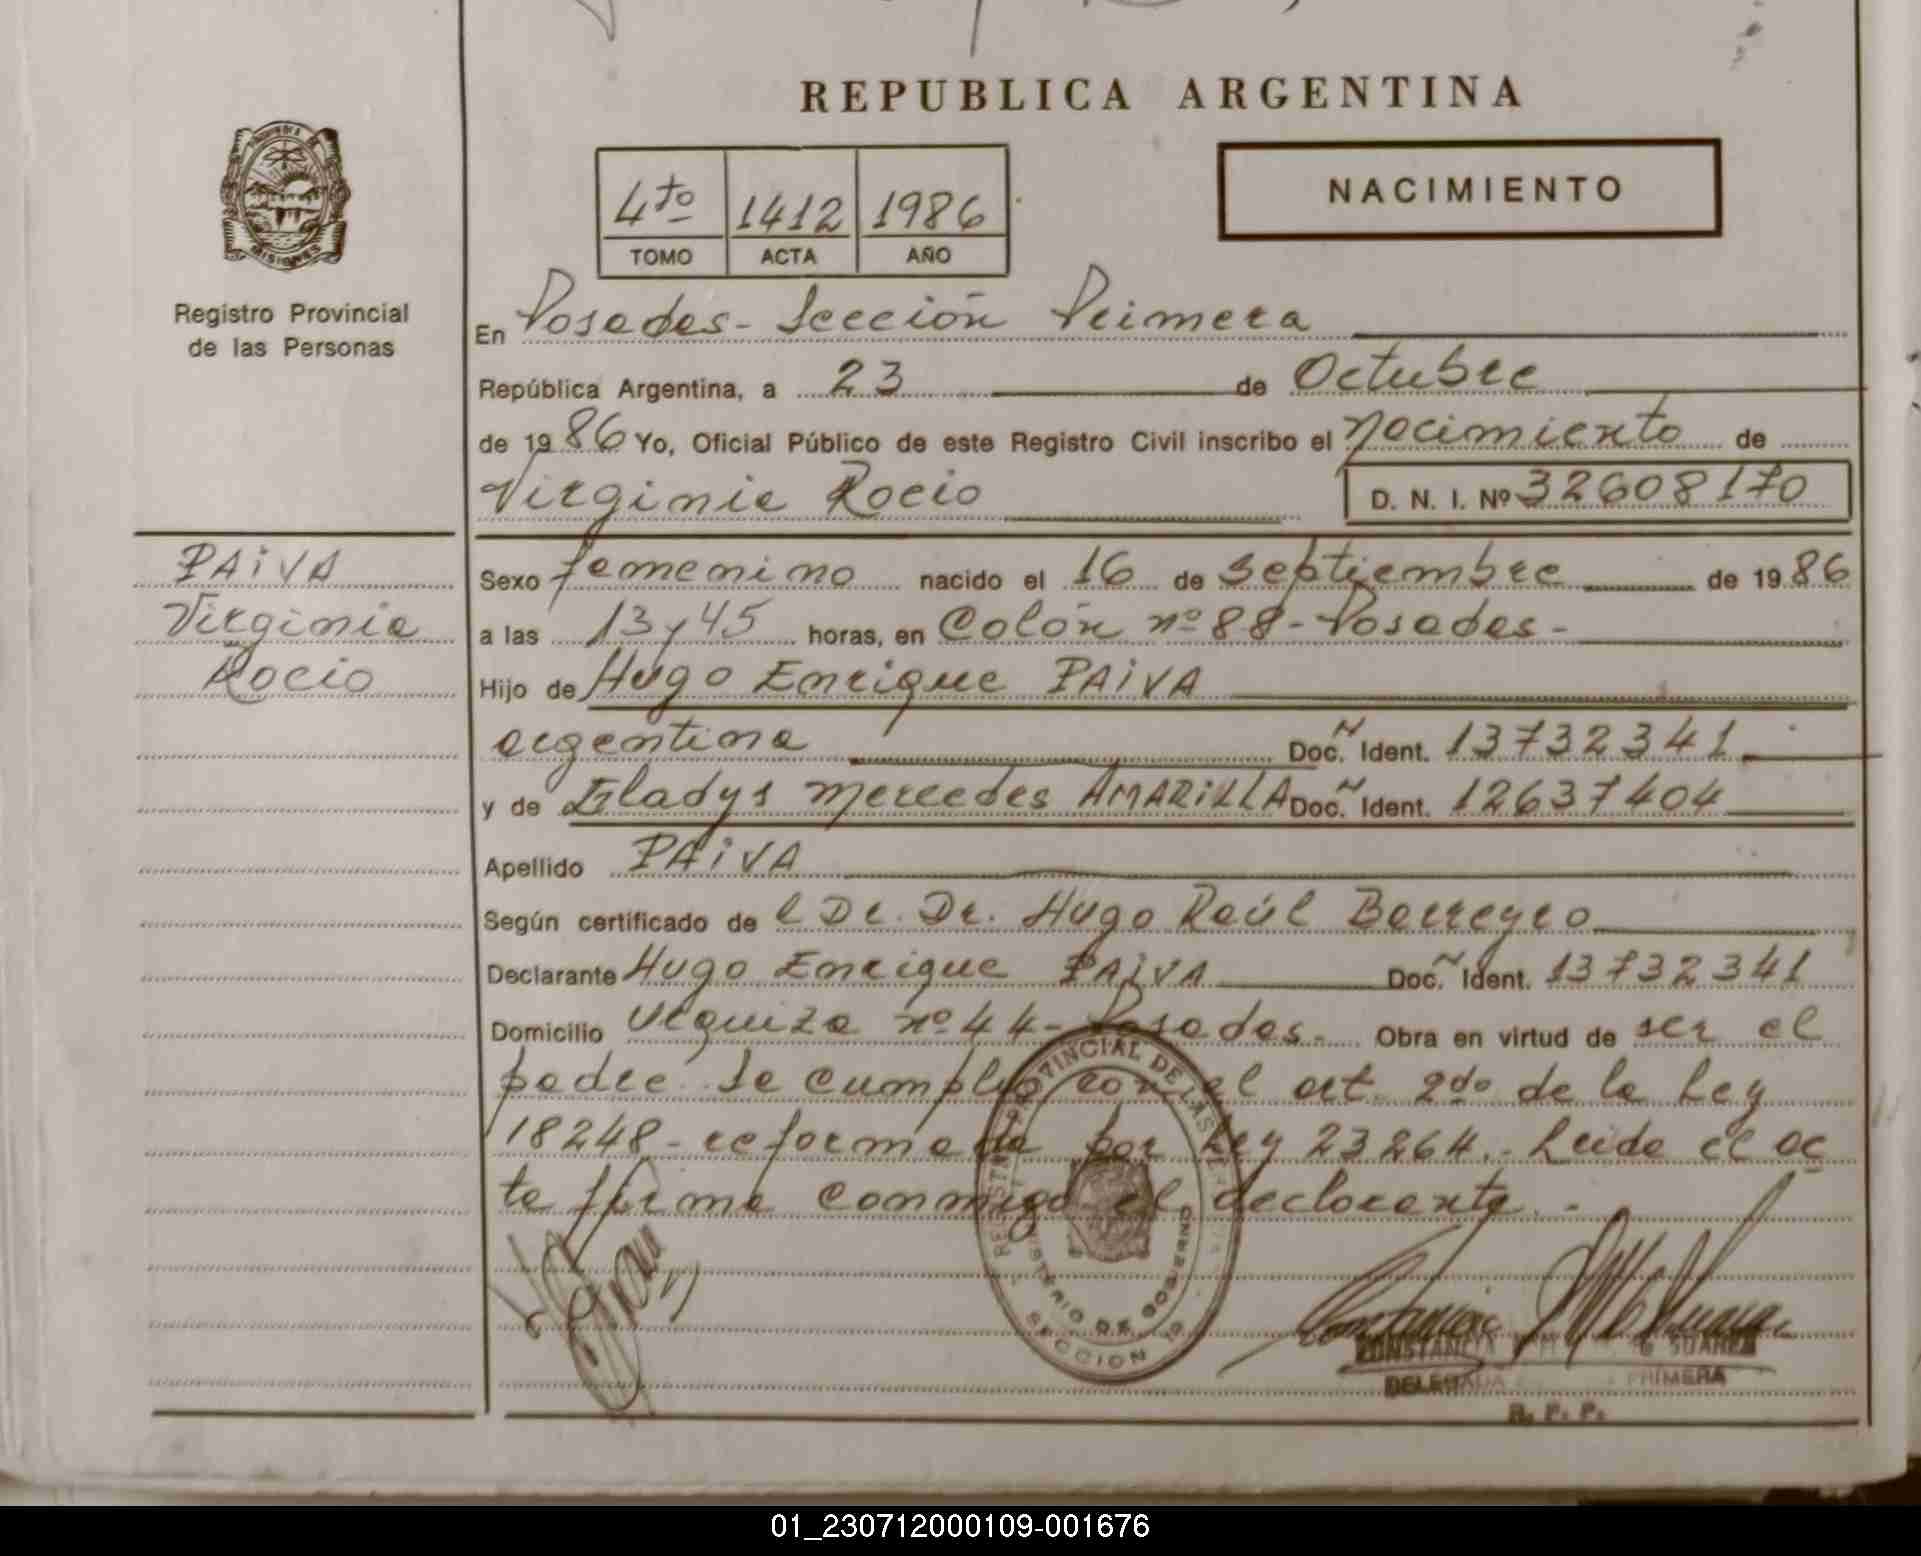 REPUBLICA ARGENTINA
MISIONES
4to 1412 1986
TOMO ACTA AÑO
NACIMIENTO
Registro Provincial
de las Personas
En Posadas - Sección Primera
República Argentina, a 23 de Octubre
de 1986 Yo, Oficial Público de este Registro Civil inscribo el Nacimiento de
Virginia Rocio D. N. I. Nº 32608170
PAiVA
Virginia
Rocio
Sexo femenino nacido el 16 de Septiembre de 1986
a las 13 y 45 horas, en Colón nº 88 - Posadas -
Hijo de Hugo Enrique PAiVA
argentina Doc. Ident. 13732341
y de Gladys Mercedes AMARiLLA Doc. Ident. 12637404
Apellido PAiVA
Según certificado de l Dr. Dr. Hugo Raúl Barreyro
Declarante Hugo Enrique PAiVA Doc. Ident. 13732341
Domicilio Urquiza nº 44 - Posadas - Obra en virtud de ser el
padre. Se cumple con el art. 2do de la Ley
18248 - reformada por Ley 23264. - Leida el ac
ta firma conmigo el declarante. -
REGISTRO PROVINCIAL DE LAS
MINISTERIO DE GOBIERNO
SECCION 1a
CONSTANCIA SUAREZ
DELEGADA PRIMERA
R. P. P.
01_230712000109-001676